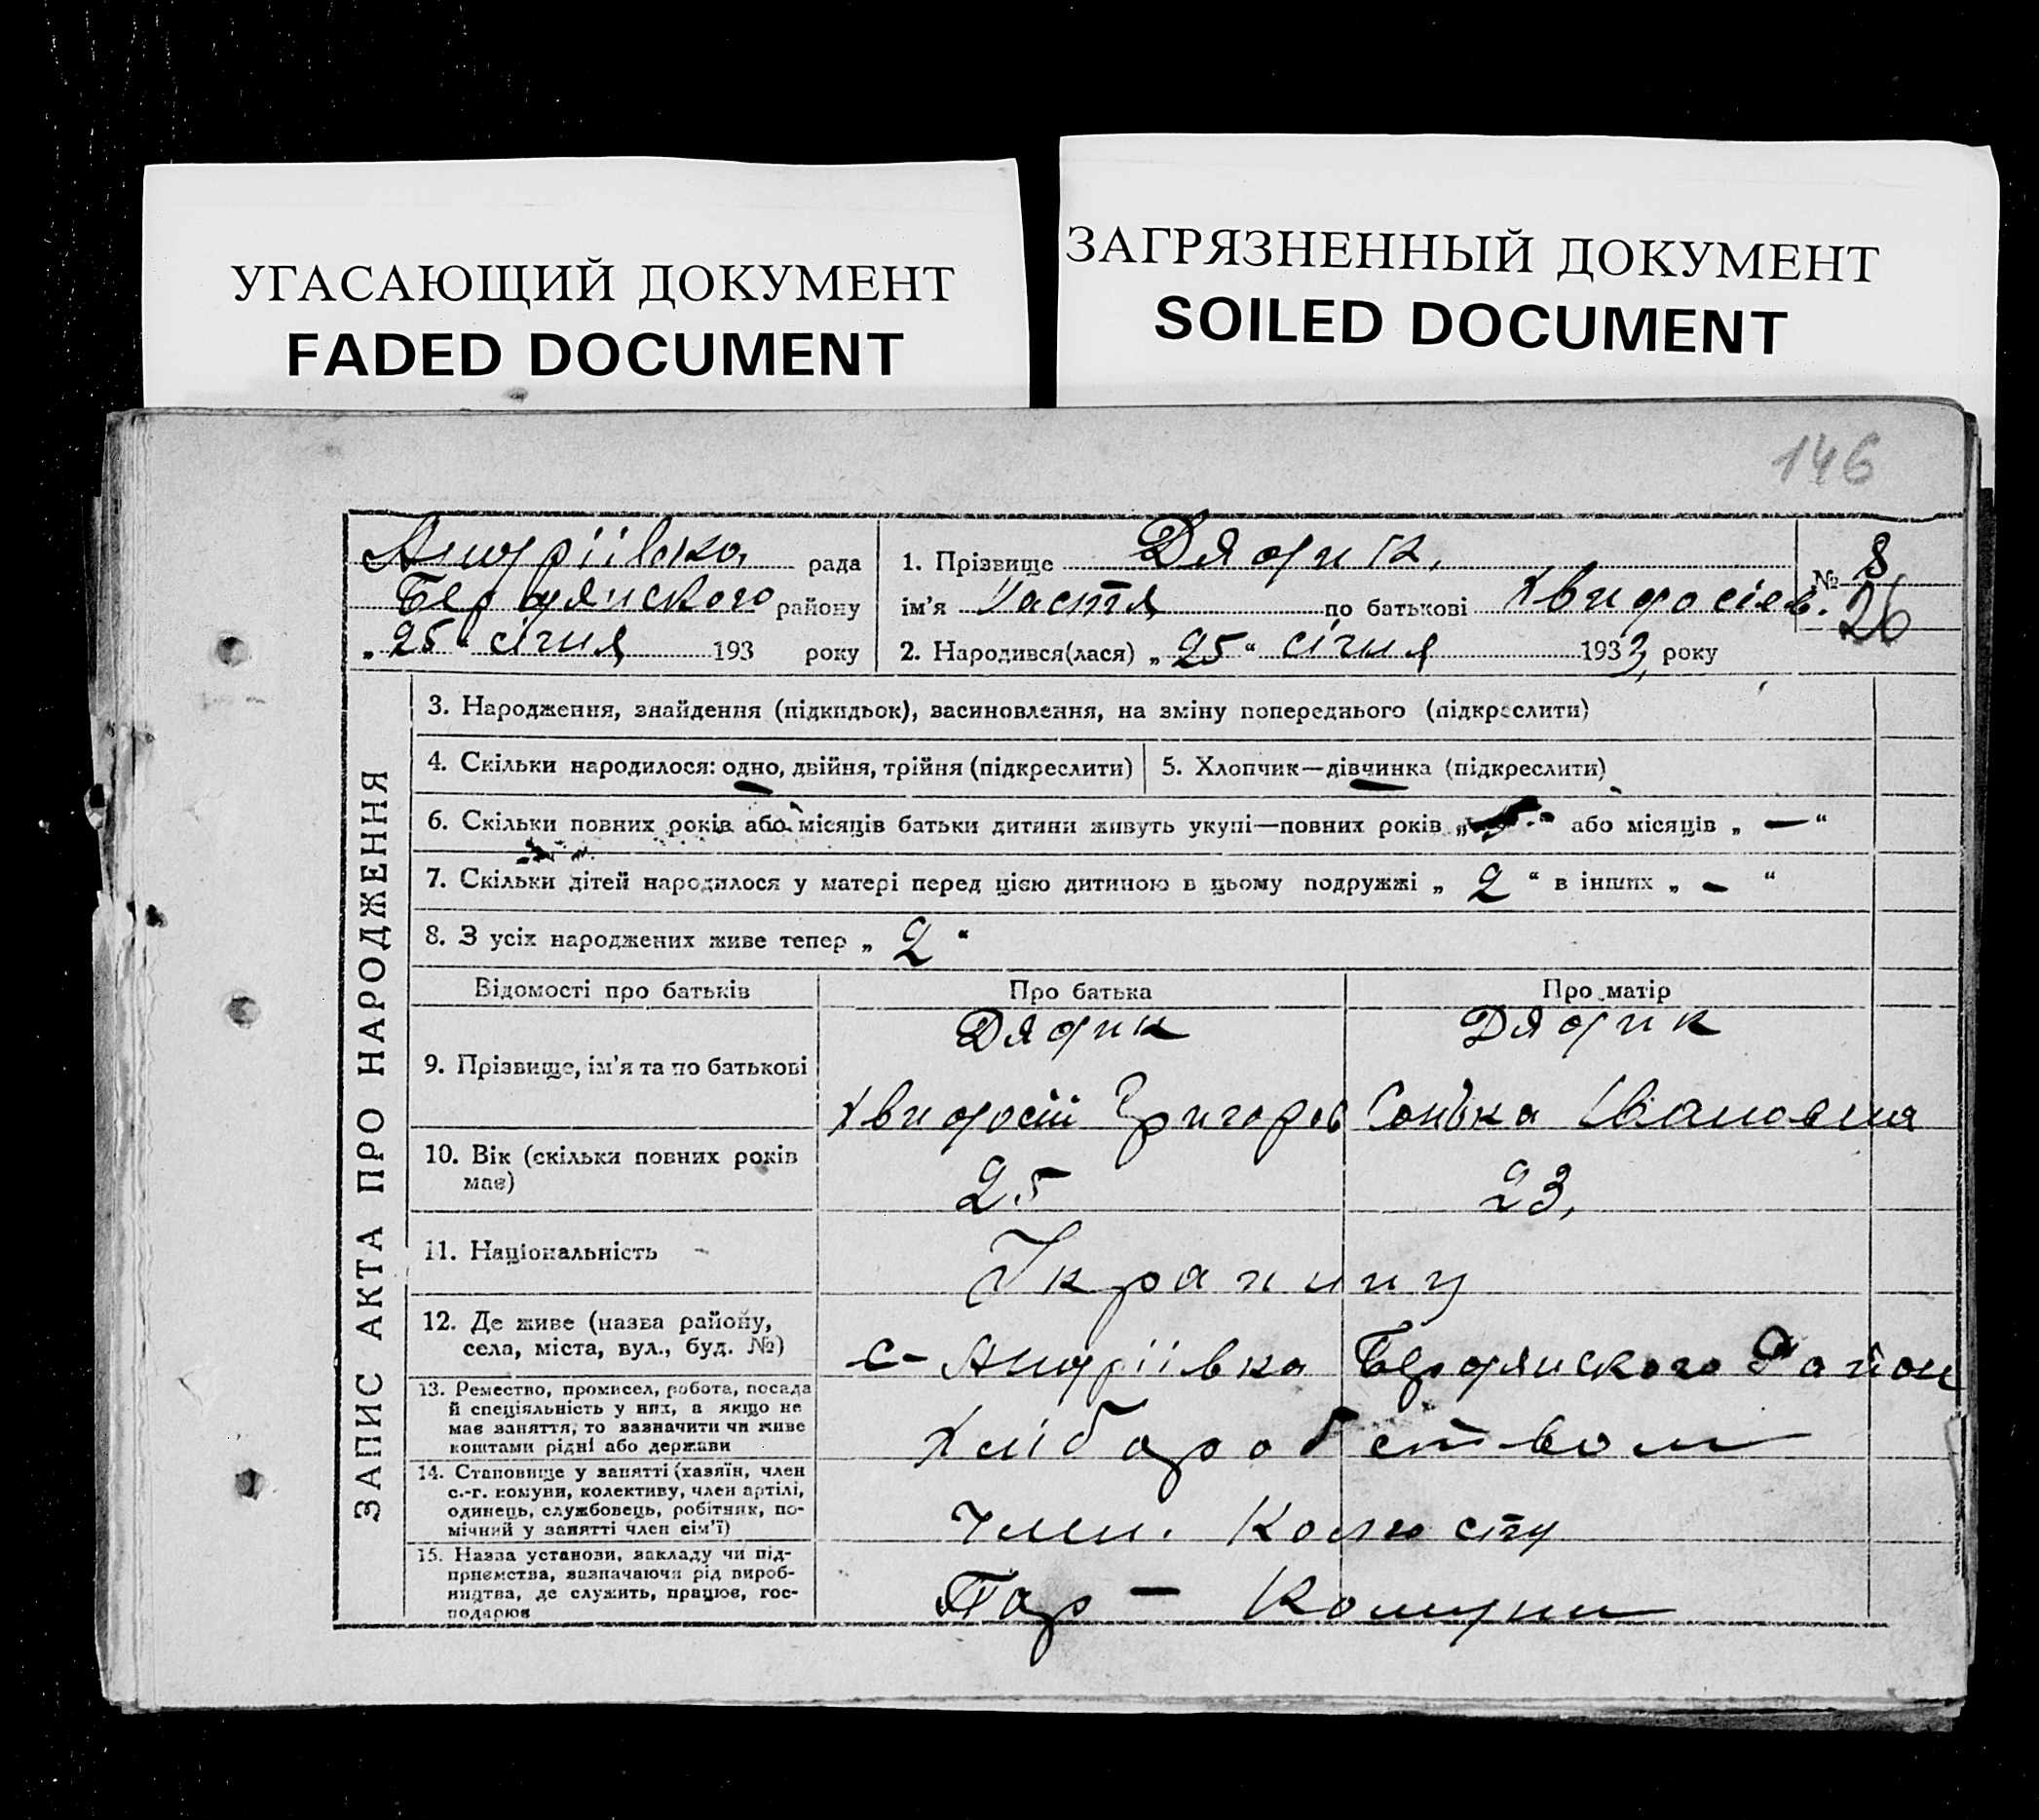 УГАСАЮЩИЙ ДОКУМЕНТ
FADED DOCUMENT
ЗАГРЯЗНЕННЫЙ ДОКУМЕНТ
SOILED DOCUMENT
146
ЗАПИС АКТА ПРО НАРОДЖЕННЯ
Андріівка рада
Бердянского району
„ 25 “ січня 193 року
1. Прізвище Дядик,
ім'я Настя по батькові Хвидосієв.
2. Народився(лася) „ 25 “ січня 1933, року
№ 8
26
3. Народження, знайдення (підкидьок), засиновлення, на зміну попереднього (підкреслити)
4. Скільки народилося: одно, двійня, трійня (підкреслити)
5. Хлопчик—дівчинка (підкреслити)
6. Скільки повних років або місяців батьки дитини живуть укупі—повних років „ “ або місяців „ — “
7. Скільки дітей народилося у матері перед цією дитиною в цьому подружжі „ 2 “ в інших „ - “
8. З усіх народжених живе тепер „ 2 “
Відомості про батьків Про батька Про матір
9. Прізвище, ім'я та по батькові
Дядик Дядик
Хвидосій Григоров Сонька Івановна
10. Вік (скільки повних років
має)
25 23,
11. Національність
Украинц
12. Де живе (назва району,
села, міста, вул., буд. №)
с- Андріівка Бердянского Район
13. Ремество, промисел, робота, посада
й спеціяльність у них, а якщо не
має заняття, то зазначити чи живе
коштами рідні або держави
Хліборобством
14. Становище у занятті (хазяїн, член
с.-г. комуни, колективу, член артілі,
одинець, службовець, робітник, по-
мічний у занятті член сім'ї)
член. Колгосту
15. Назва установи, закладу чи під-
приємства, зазначаючи рід вироб-
ництва, де служить, працює, гос-
подарює
Пар — Комуни